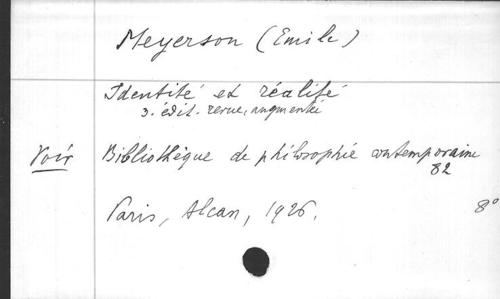 Meyerson (Emile)
Identité et réalité
3. édit. revue, augmentée
Voir Bibliothèque de philosophie contemporaine
82
Paris, Alcan, 1926.
8°